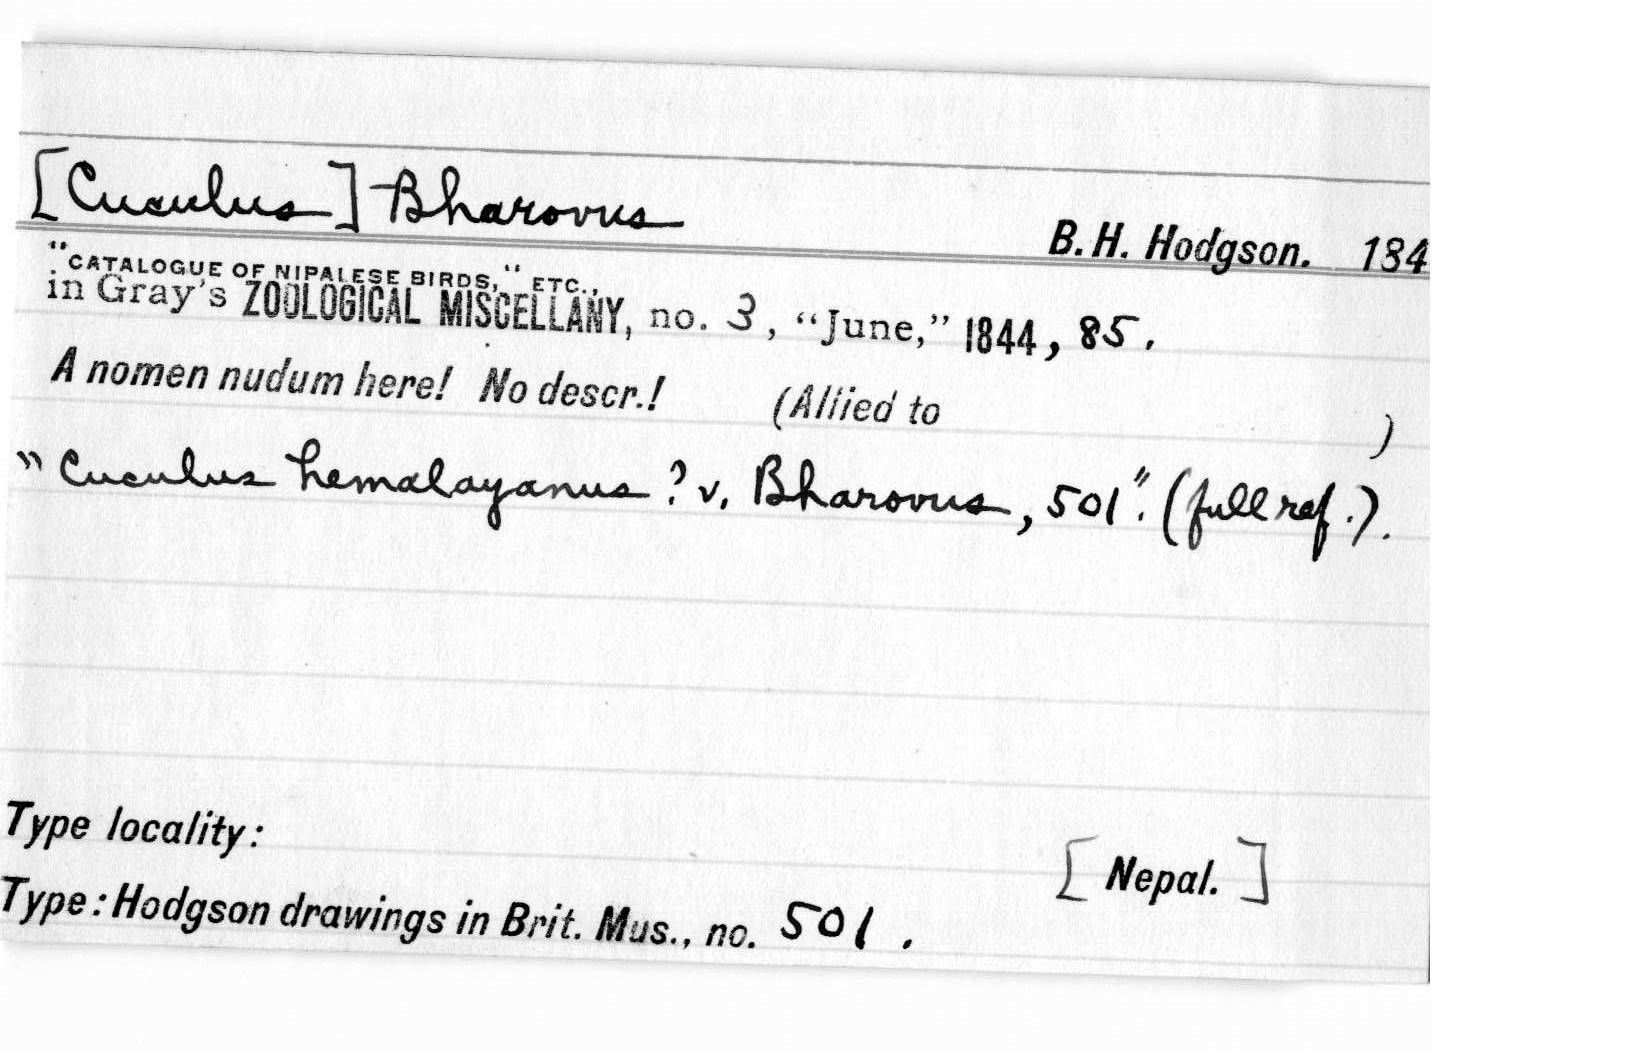 [Cuculus] Bharovus
B. H. Hodgson. 184
"CATALOGUE OF NIPALESE BIRDS," ETC.,
in Gray's ZOOLOGICAL MISCELLANY, no. 3, "June," 1844, 85.
A nomen nudum here! No descr.! (Allied to )
"Cuculus hemalayanus? v. Bharovus, 501". (full ref.).
Type locality: [Nepal.]
Type: Hodgson drawings in Brit. Mus., no. 501.